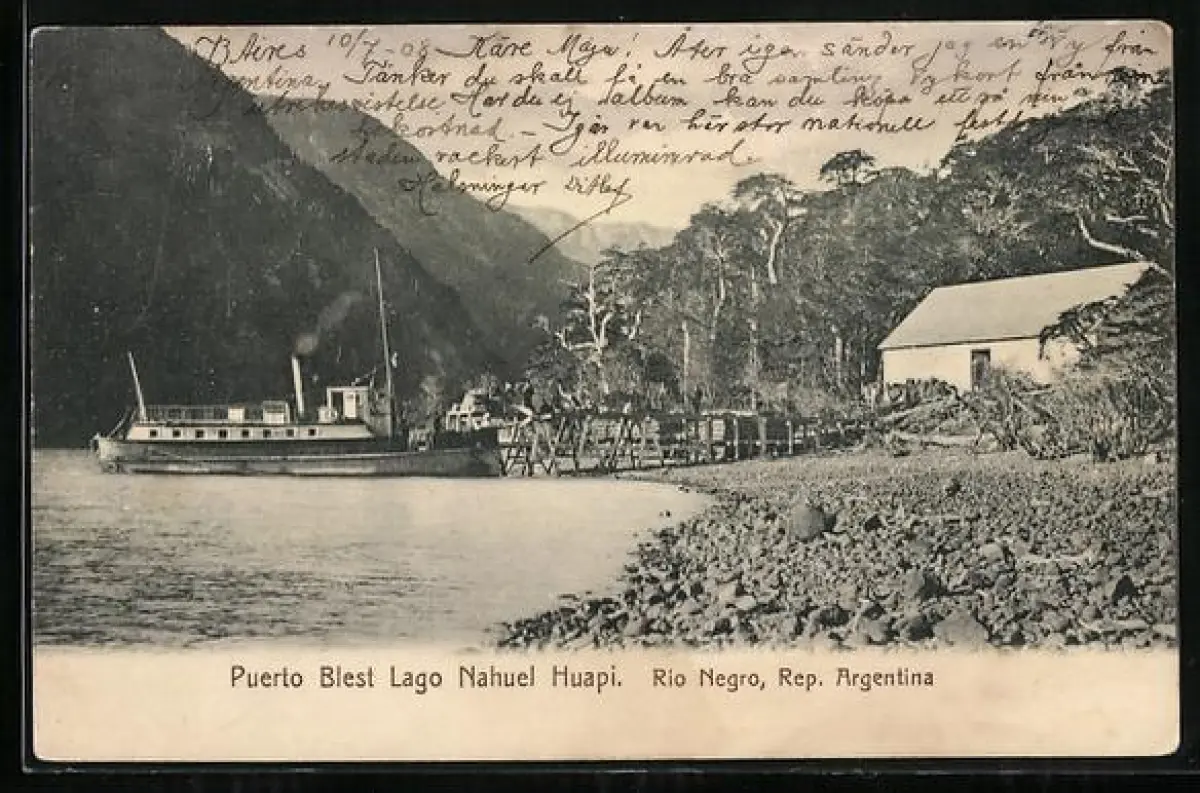 B Aires 10/7-08 Käre Maja! Åter igen sänder jag en vy från
Argentina. Tänker du skall få en bra samling vykort från
sistelse Har du ej album kan du köpa ett på min
bekostnad. - Igår var här stor nationell festdag
staden vackert illuminerad.
Hälsninger Ditlef
Puerto Blest Lago Nahuel Huapi. Rio Negro, Rep. Argentina